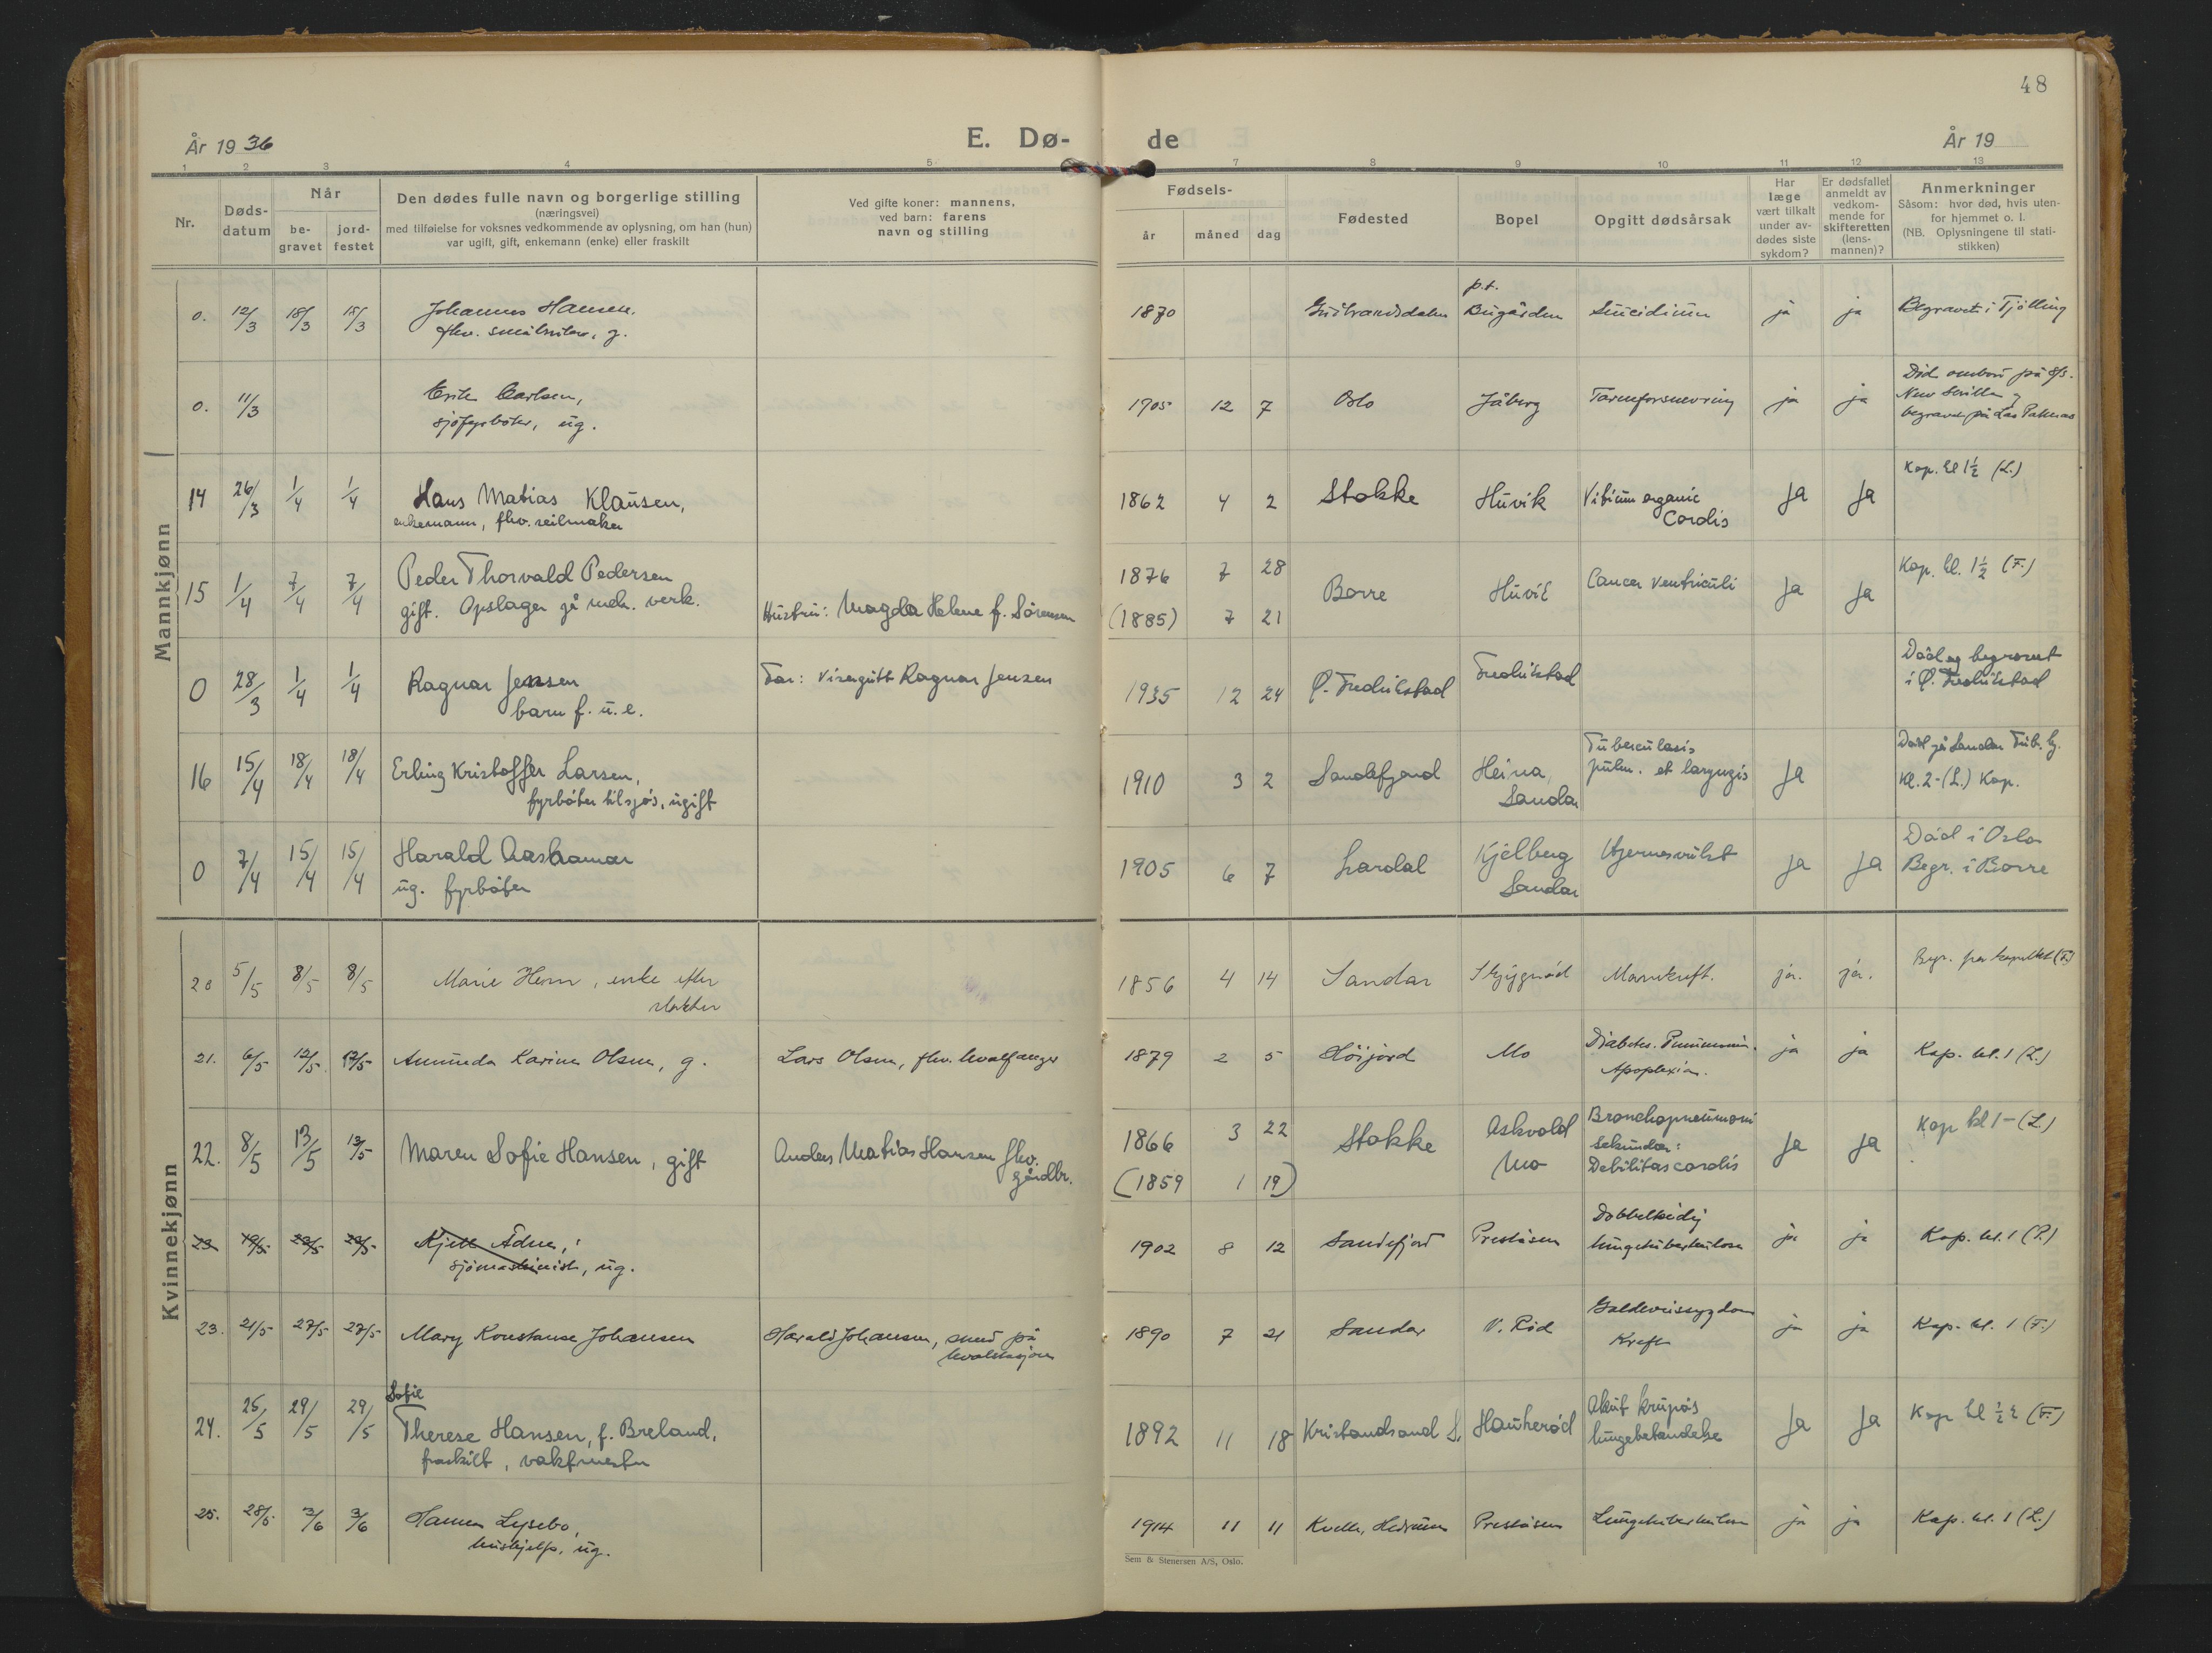 48
År 1936 E. Dø- de År 19
1 2 3 4 5 7 8 9 10 11 12 13
Nr.
Døds-
datum
Når
be-
gravet
jord-
festet
Den dødes fulle navn og borgerlige stilling
(næringsvei)
med tilføielse for voksnes vedkommende av oplysning, om han (hun)
var ugift, gift, enkemann (enke) eller fraskilt
Ved gifte koner: mannens,
ved barn: farens
navn og stilling
Fødsels-
år måned dag
Fødested
Bopel
Opgitt dødsårsak
Har
læge
vært tilkalt
under av-
dødes siste
sykdom?
Er dødsfallet
anmeldt av
vedkom-
mende for
skifteretten
(lens-
mannen)?
Anmerkninger
Såsom: hvor død, hvis uten-
for hjemmet o. l.
(NB. Oplysningene til stati-
stikken)
Mannkjønn
0. 12/3 18/3 18/3 Johannes Hansen,
fhv. småbruker, g.
1870 Gudbrandsdalen p.t.
Bugården Suicidium ja ja Begravet i Tjølling
0. 11/3 Erik Carlsen,
sjøfyrbøter, ug.
1905 12 7 Oslo Jåberg Tarmforsnevring ja ja Død ombord på s/s.
New Sevilla og
begravet på Las Palmas
14 26/3 1/4 1/4 Hans Matias Klausen,
enkemann, fhv. seilmaker
1862 4 2 Stokke Huvik Vitium organic
Cordis Ja Ja Kap. kl 1½ (L.)
15 1/4 7/4 7/4 Peder Thorvald Pedersen
gift. Opslager på mek. verk.
Hustru: Magda Helene f. Sørensen
1876 7 28
(1885) 7 21
Borre Huvik Cancer Ventriculi Ja Ja Kap. kl. 1½ (F.)
0 28/3 1/4 1/4 Ragnar Jensen
barn f. u. e.
Far: Visergutt Ragnar Jensen
1935 12 24 Ø. Fredrikstad Fredrikstad Død og begravet
i Ø. Fredrikstad
16 15/4 18/4 18/4 Erling Kristoffer Larsen,
fyrbøter tilsjøs, ugift
1910 3 2 Sandefjord Heina,
Sandar Tuberculosis
pulm. et laryngis Ja Død på Sandar Tub. hj.
Kl. 2- (L.) Kap.
0 7/4 15/4 15/4 Harald Aashamar
ug. fyrbøter
1905 6 7 Lardal Kjelberg
Sandar Hjernesvulst Ja Ja Død i Oslo
Begr. i Borre
Kvinnekjønn
20 5/5 8/5 8/5 Marie Hem, enke efter
slakter
1856 4 14 Sandar Marukraft. ja. ja. Begr. fra kapellet (F.)
21. 6/5 12/5 12/5 Amunda Karine Olsen, g.
Lars Olsen, fhv. hvalfanger
1879 2 5 Høijord Mo Diabetes. Pneumonia.
Apoplexia. ja ja Kap. kl. 1 (L.)
22. 8/5 13/5 13/5 Maren Sofie Hansen, gift
Anders Matias Hansen fhv.
gårdbr.
1866 3 22
(1859 1 19)
Stokke Askvold
Mo Bronchopneumoni
Sekundær:
Debilitas cordis Ja Ja Kap kl 1- (L.)
23. 19/5 23/5 23/5 Kjell Ådne,
sjømaskinist, ug.
1902 8 12 Sandefjord Preståsen Dobbeltsidig
lungetuberkulose ja ja Kap. kl. 1 (P.)
23. 21/5 27/5 27/5 Mary Konstanse Johansen
Harald Johansen, smed på
hvalstasjon
1890 7 21 Sandar V. Rød Galdeveissygdom
Kreft ja ja Kap. kl. 1 (F.)
24. 25/5 29/5 29/5 Sofie
Therese Hansen, f. Breland,
fraskilt, vaktmester
1892 11 18 Kristiandsand S. Haukerød Akut krupøs
lungebetendelse Ja Ja Kap kl ½2 (F.)
25. 28/5 3/6 3/6 Hanna Lysebo,
hushjelp, ug.
1914 11 11 Kvelle, Hedrum Preståsen Lungetuberkulose ja ja Kap. kl. 1 (L.)
Sem & Stenersen A/S, Oslo.